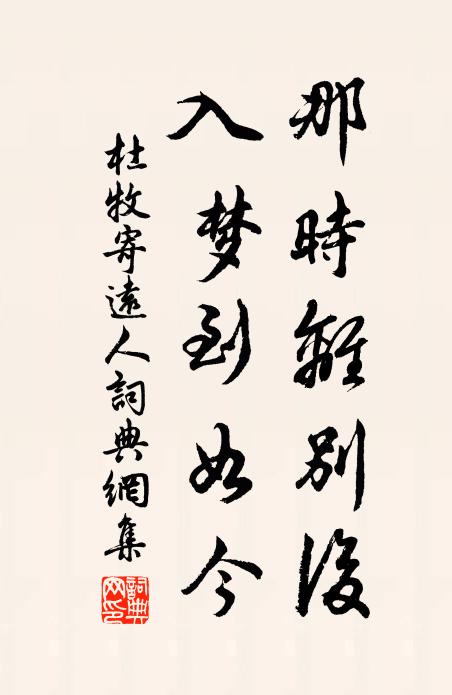 那時離别後
入梦到如今
杜牧寄遠人詞典網集
詞典网印